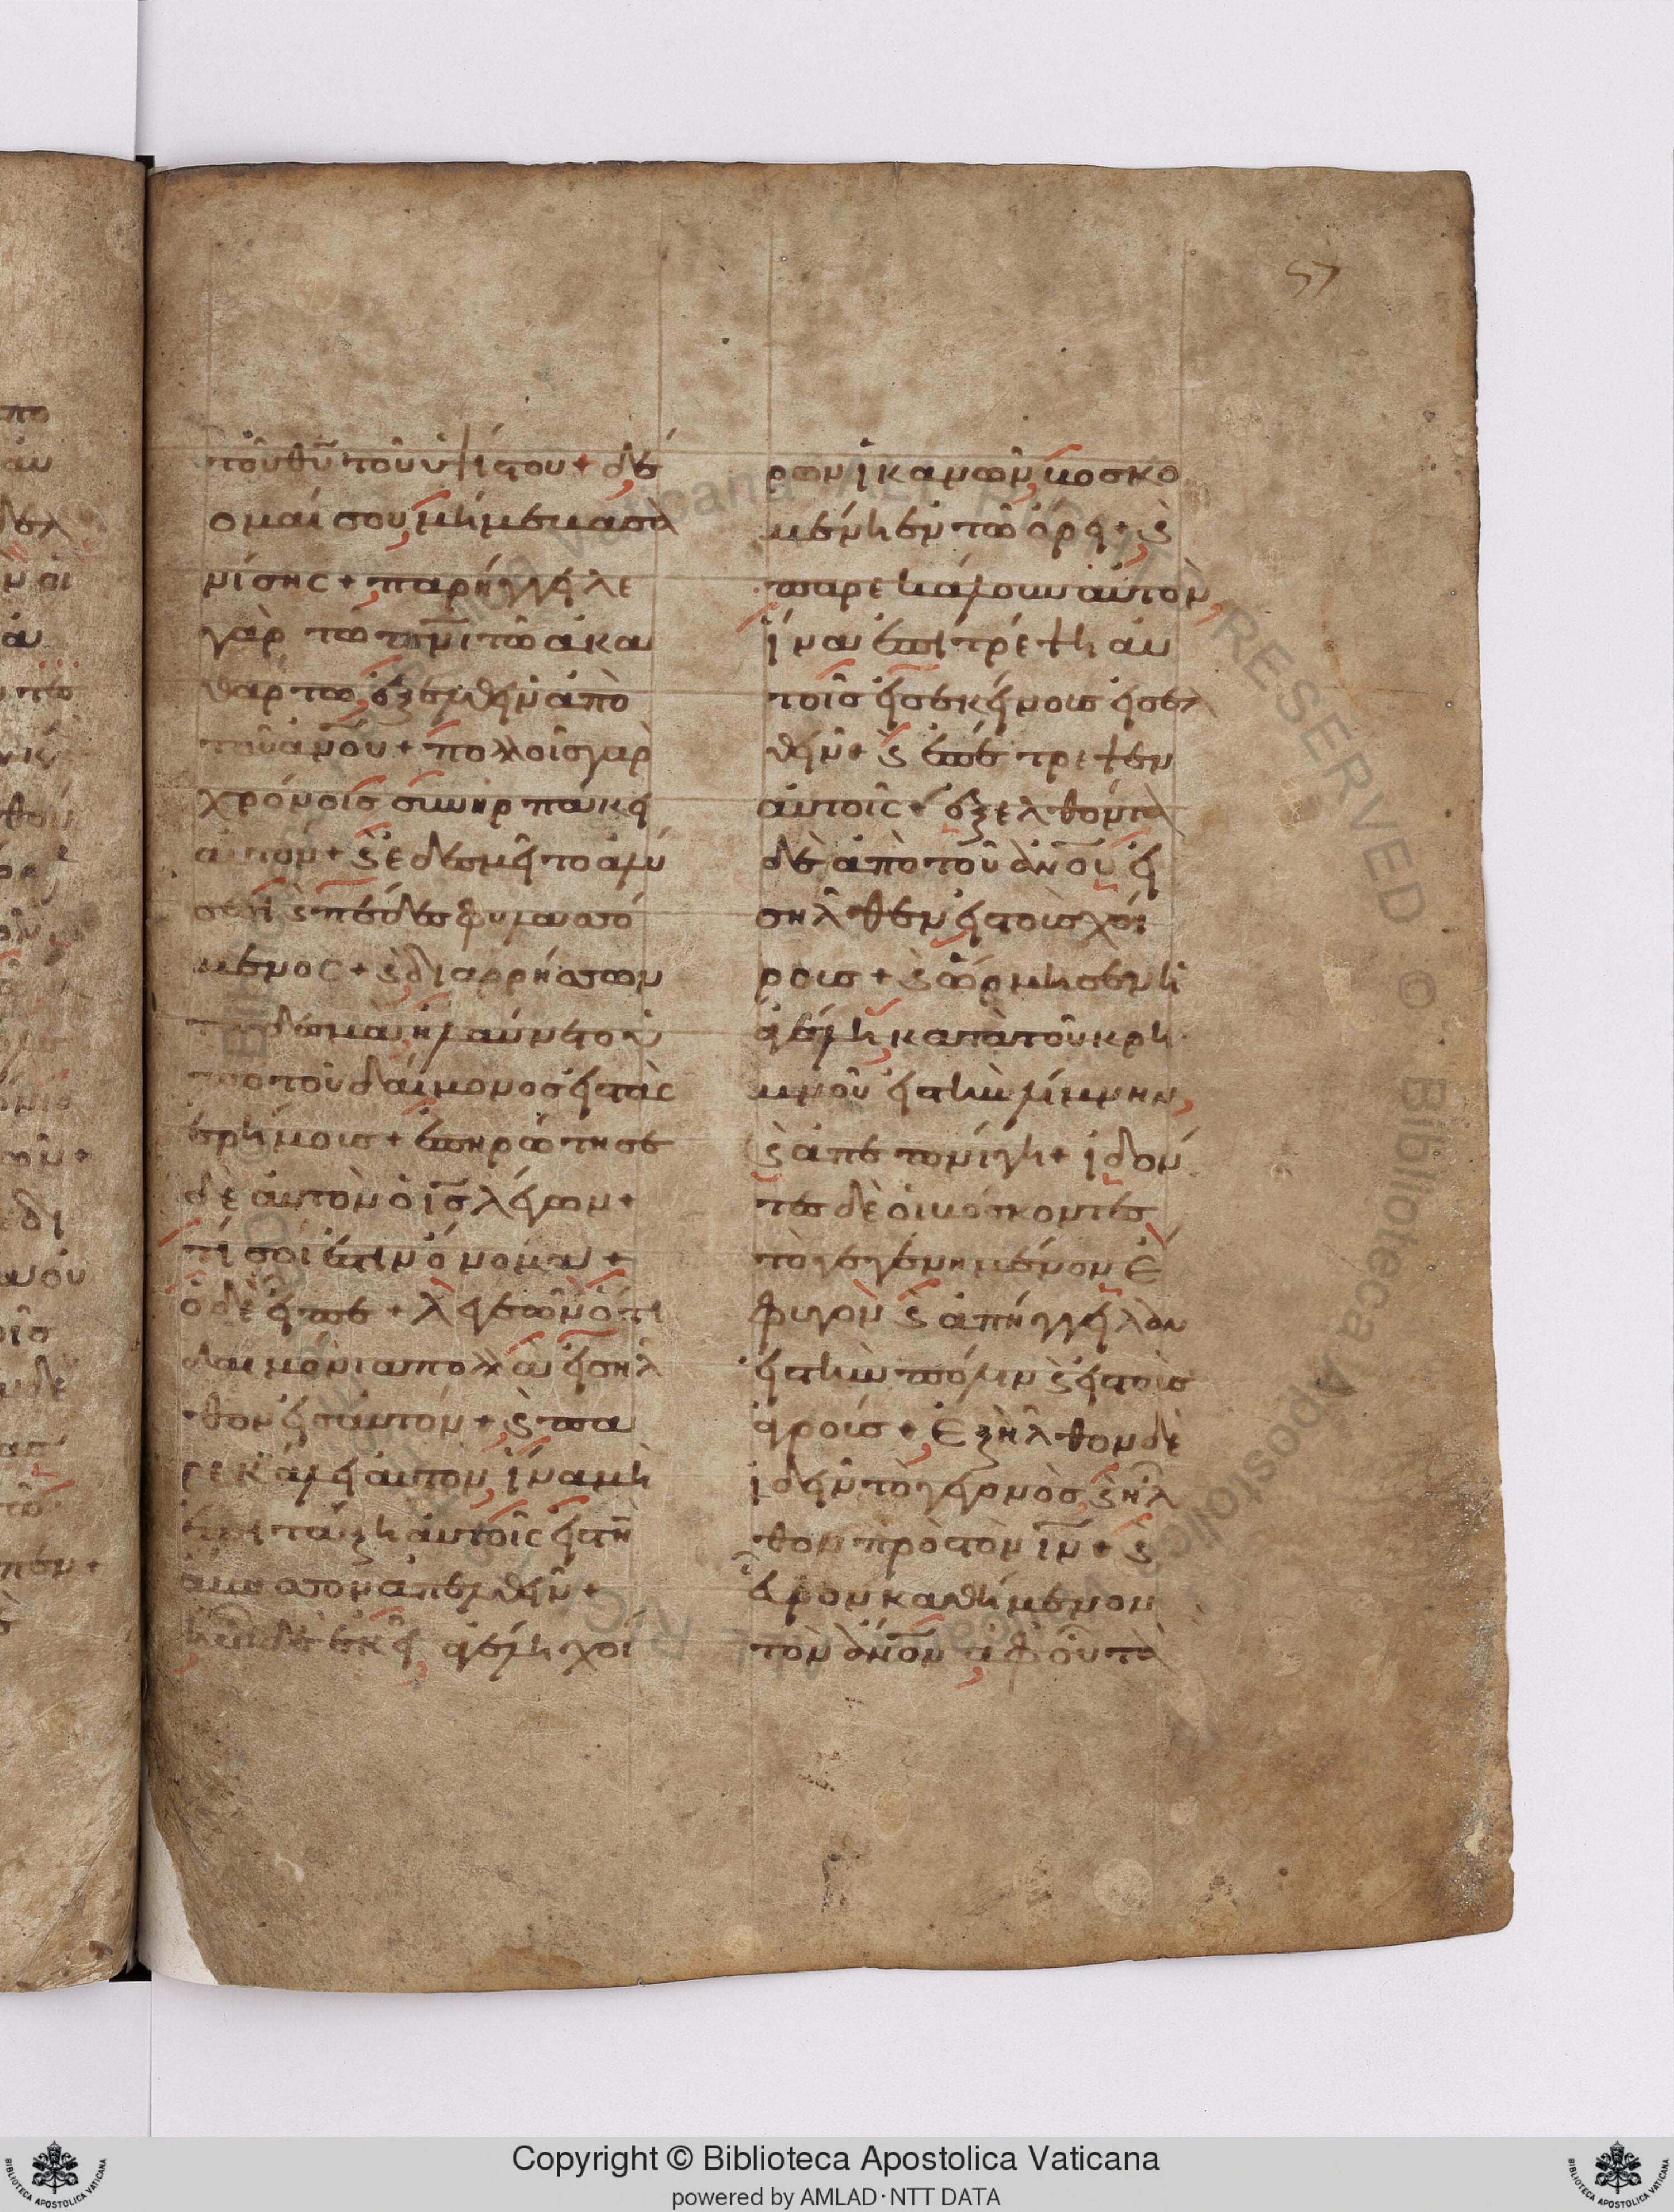 57
τοῦ θυ̅ τοῦ ὑψίστου + δέ
ομαί σου, μή με βασα
νίσης + παρήγγειλε
γὰρ τῶ πνι̅ τῶ ἀκα
θάρτω, ἐξελθεῖν ἀπὸ
τοῦ ανο̅υ + πολλοῖς γὰρ
χρόνοις συνηρπάκει
αὐτόν + ϗ ἐδεσμεῖτο ἁλύ
σεσι ϗ πέδες φυλασσό
μενος + ϗ διαρρήσσων
τὰ δεσμὰ, ἠλαύνετο ὑ
πὸ τοῦ δαίμονος εἰς τὰς
ἐρήμους + ἐπηρώτησε
δὲ αὐτὸν ὁ ις̅ λέγων +
τί σοί ἐστιν ὄνομα +
ὁ δὲ εἶπε + λεγεὼν ὅτι
δαιμόνια πολλὰ εἰσῆλ
θον εἰς αὐτόν + ϗ πα
ρεκάλει αὐτὸν, ἵνα μὴ
ἐπιτάξη αὐτοῖς εἰς τὴν
ἄβυσσον ἀπελθεῖν +
ἦν δὲ ἐκεῖ, ἀγέλη χοί
ρων ἱκανῶν, βοσκο
μένη ἐν τῶ ὄρει + ϗ
παρεκάλουν αὐτὸν,
ἵνα ἐπιτρέψη αὐ
τοῖς εἰς ἐκείνους εἰσελ
θεῖν + ϗ ἐπέτρεψεν
αὐτοῖς + ἐξελθόντα
δὲ ἀπὸ τοῦ ανο̅υ εἰ
σῆλθεν εἰς τοὺς χοί
ρους + ϗ ὥρμησεν ἡ
ἀγέλη κατὰ τοῦ κρη
μνοῦ εἰς τὴν λίμνην,
ϗ ἀπεπνίγη + ἰδόν
τες δὲ οἱ βόσκοντες
τὸ γεγενημένον ἔ
φυγον ϗ ἀπήγγειλαν
εἰς τὴν πόλιν ϗ εἰς τοὺς
ἀγρούς + Ἐξῆλθον δὲ
ἰδεῖν τὸ γεγονὸς, ϗ ἦλ
θον πρὸς τὸν ιν̅ + ϗ
εὗρον καθήμενον
τὸν ανο̅ν, ἀφ' οὗ τὰ
Copyright © Biblioteca Apostolica Vaticana
powered by AMLAD·NTT DATA